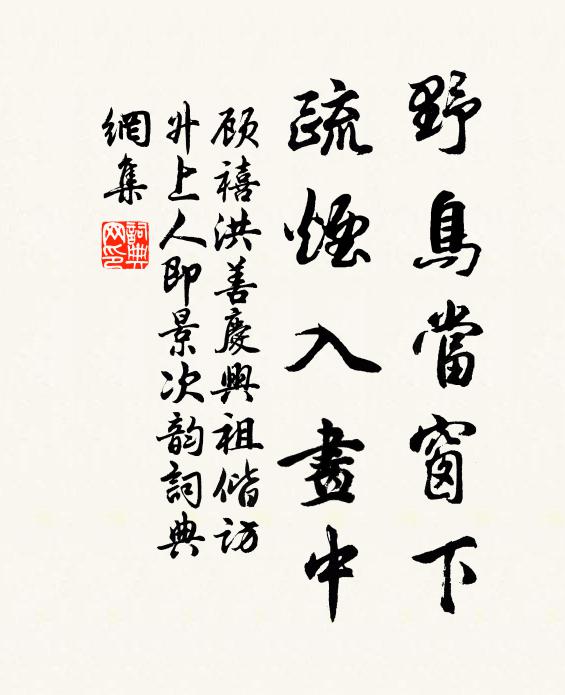 野鳥當窗下
疏煙入畫中
顾禧洪善慶興祖偕访
升上人即景次韵詞典
網集
詞典
网印